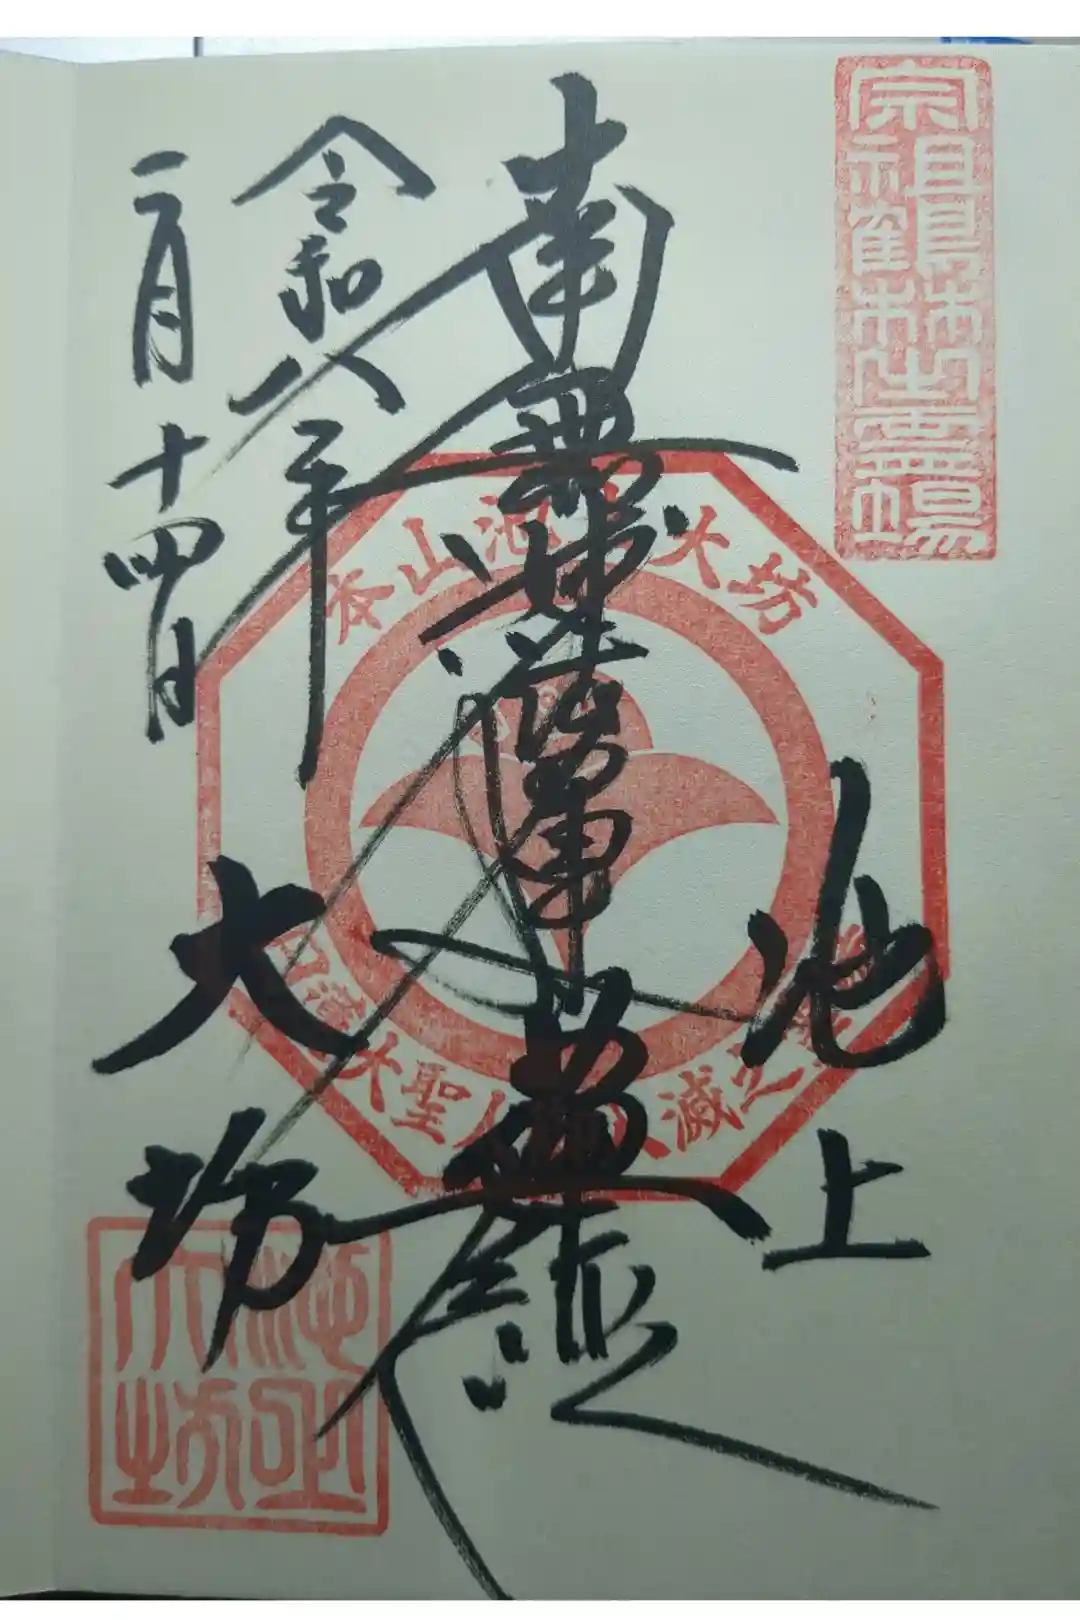 宗祖鶴林之霊場
南無妙法蓮華經
池上
大坊
令和八年
二月十四日
本山池上大坊
日蓮大聖人御入滅之霊場
池上大坊